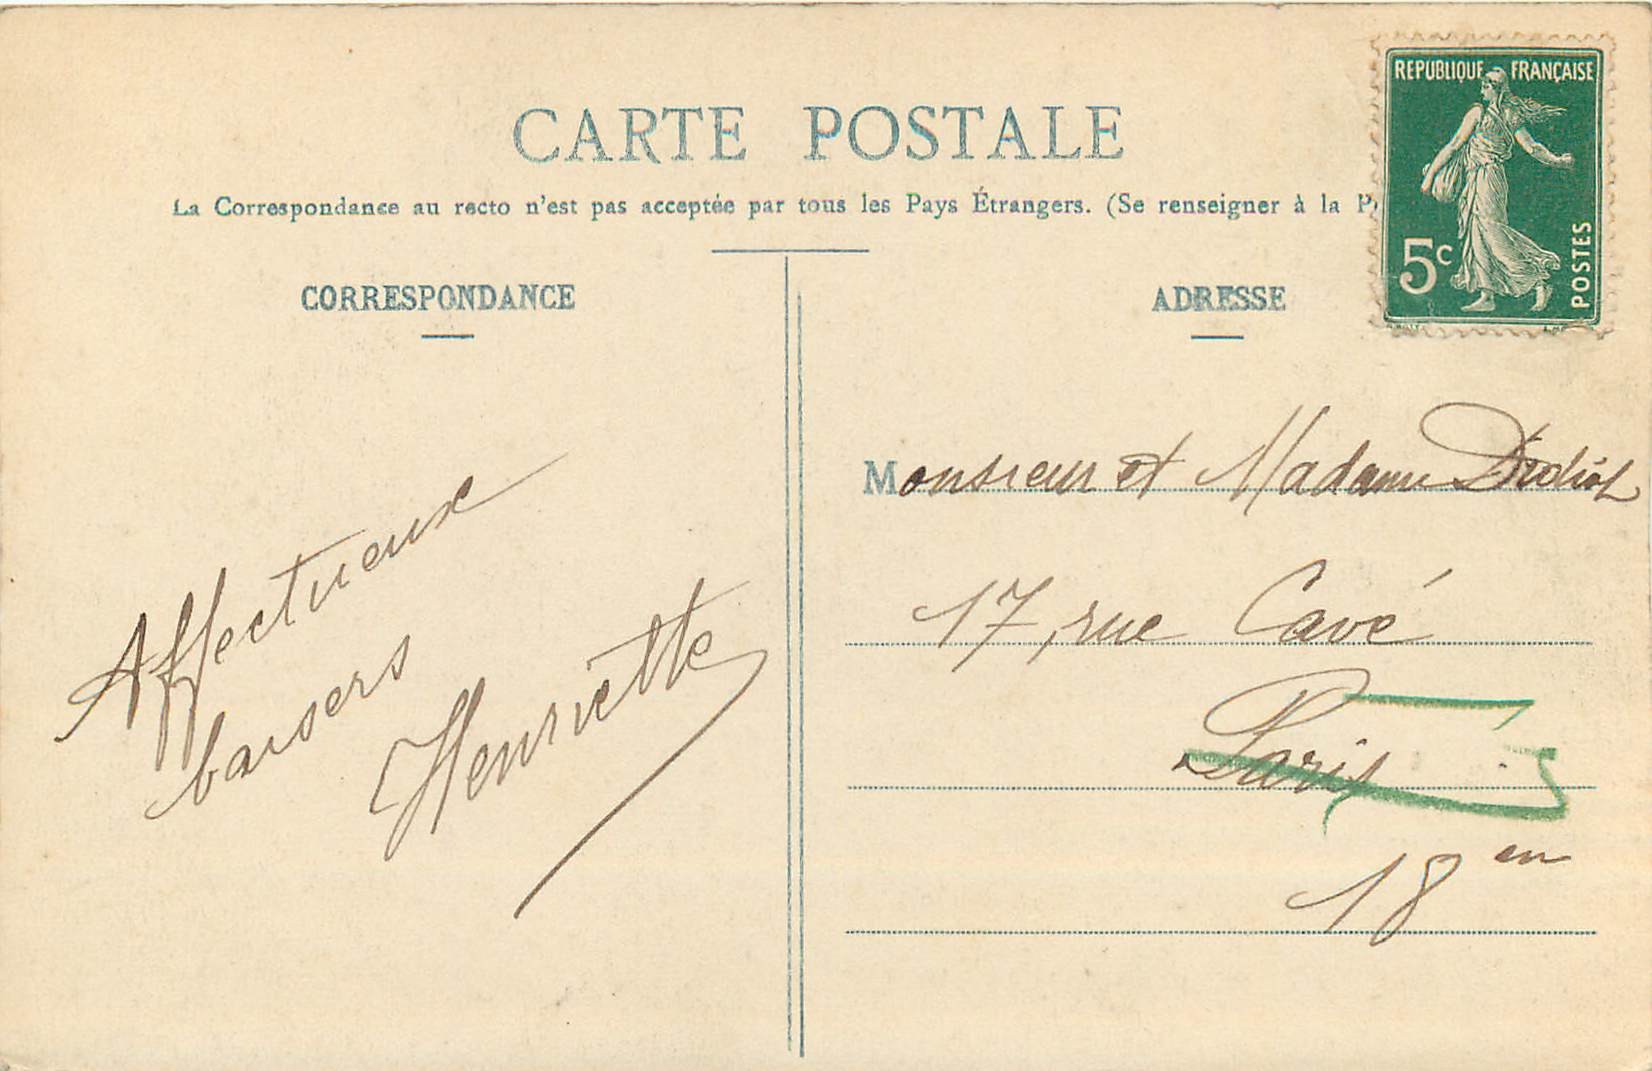 CARTE POSTALE
La Correspondance au recto n'est pas acceptée par tous les Pays Étrangers. (Se renseigner à la P
REPUBLIQUE FRANÇAISE
5c
POSTES
CORRESPONDANCE
Affectueux
baisers
Henriette
ADRESSE
Monsieur et Madame Didiot
17, rue Cavé
Paris
18 em